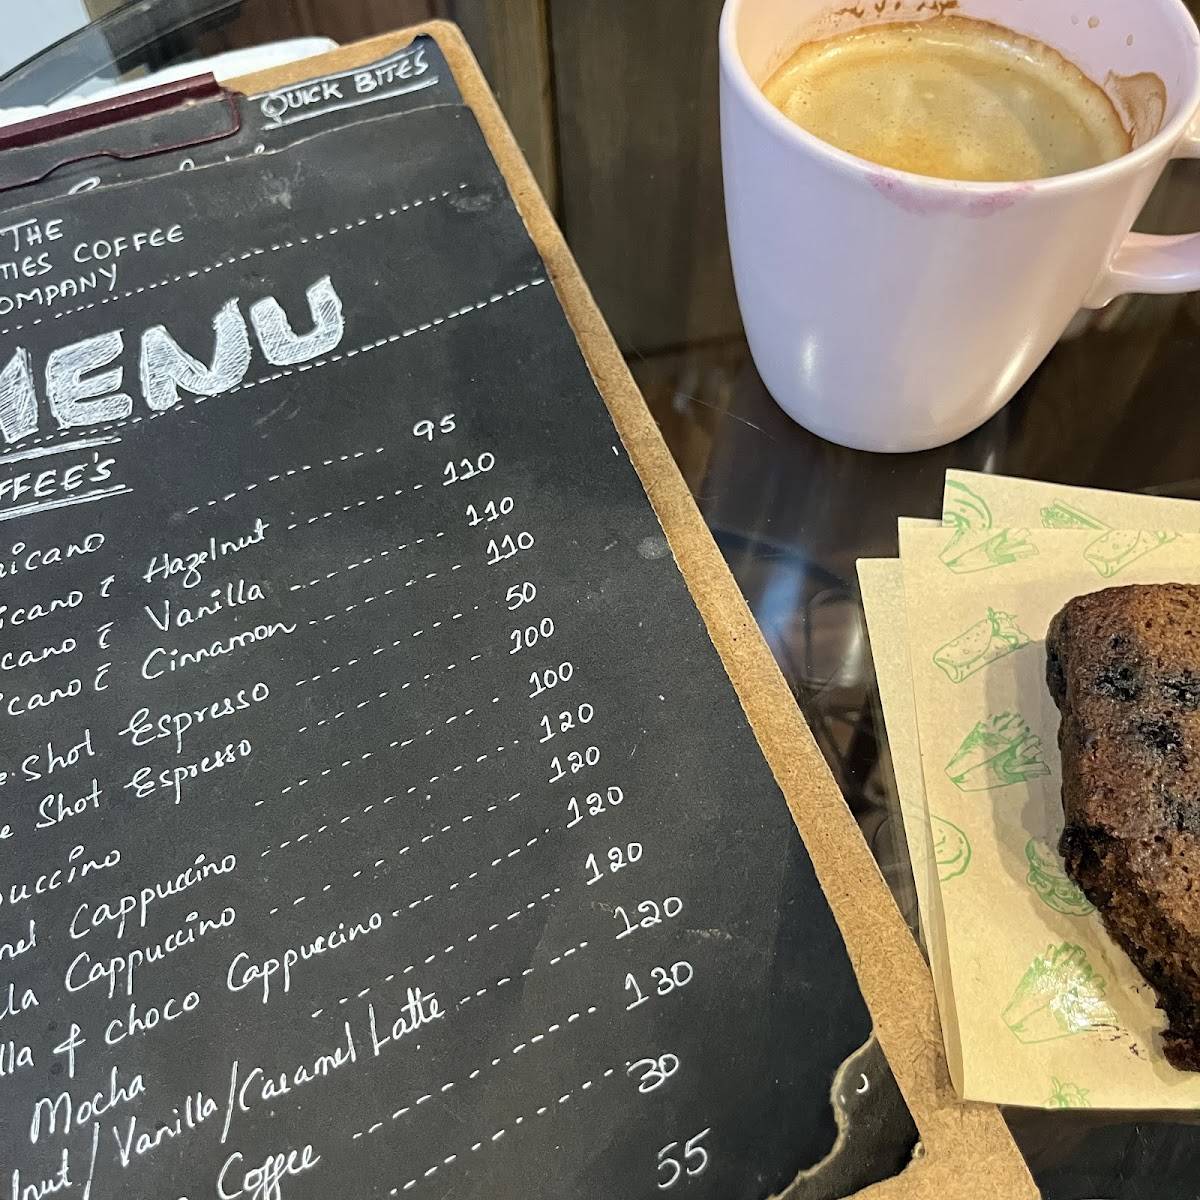 QUICK BITES
THE
TIES COFFEE
OMPANY
MENU
FFEE'S
ricano 95
icano c̄ Hazelnut 110
cano c̄ Vanilla 110
icano c̄ Cinnamon 110
e Shot Espresso 50
e Shot Espresso 100
puccino 100
mel Cappuccino 120
lla Cappuccino 120
lla & choco Cappuccino 120
Mocha 120
lnut / Vanilla / Caramel Latte 120
Coffee 130
30
55